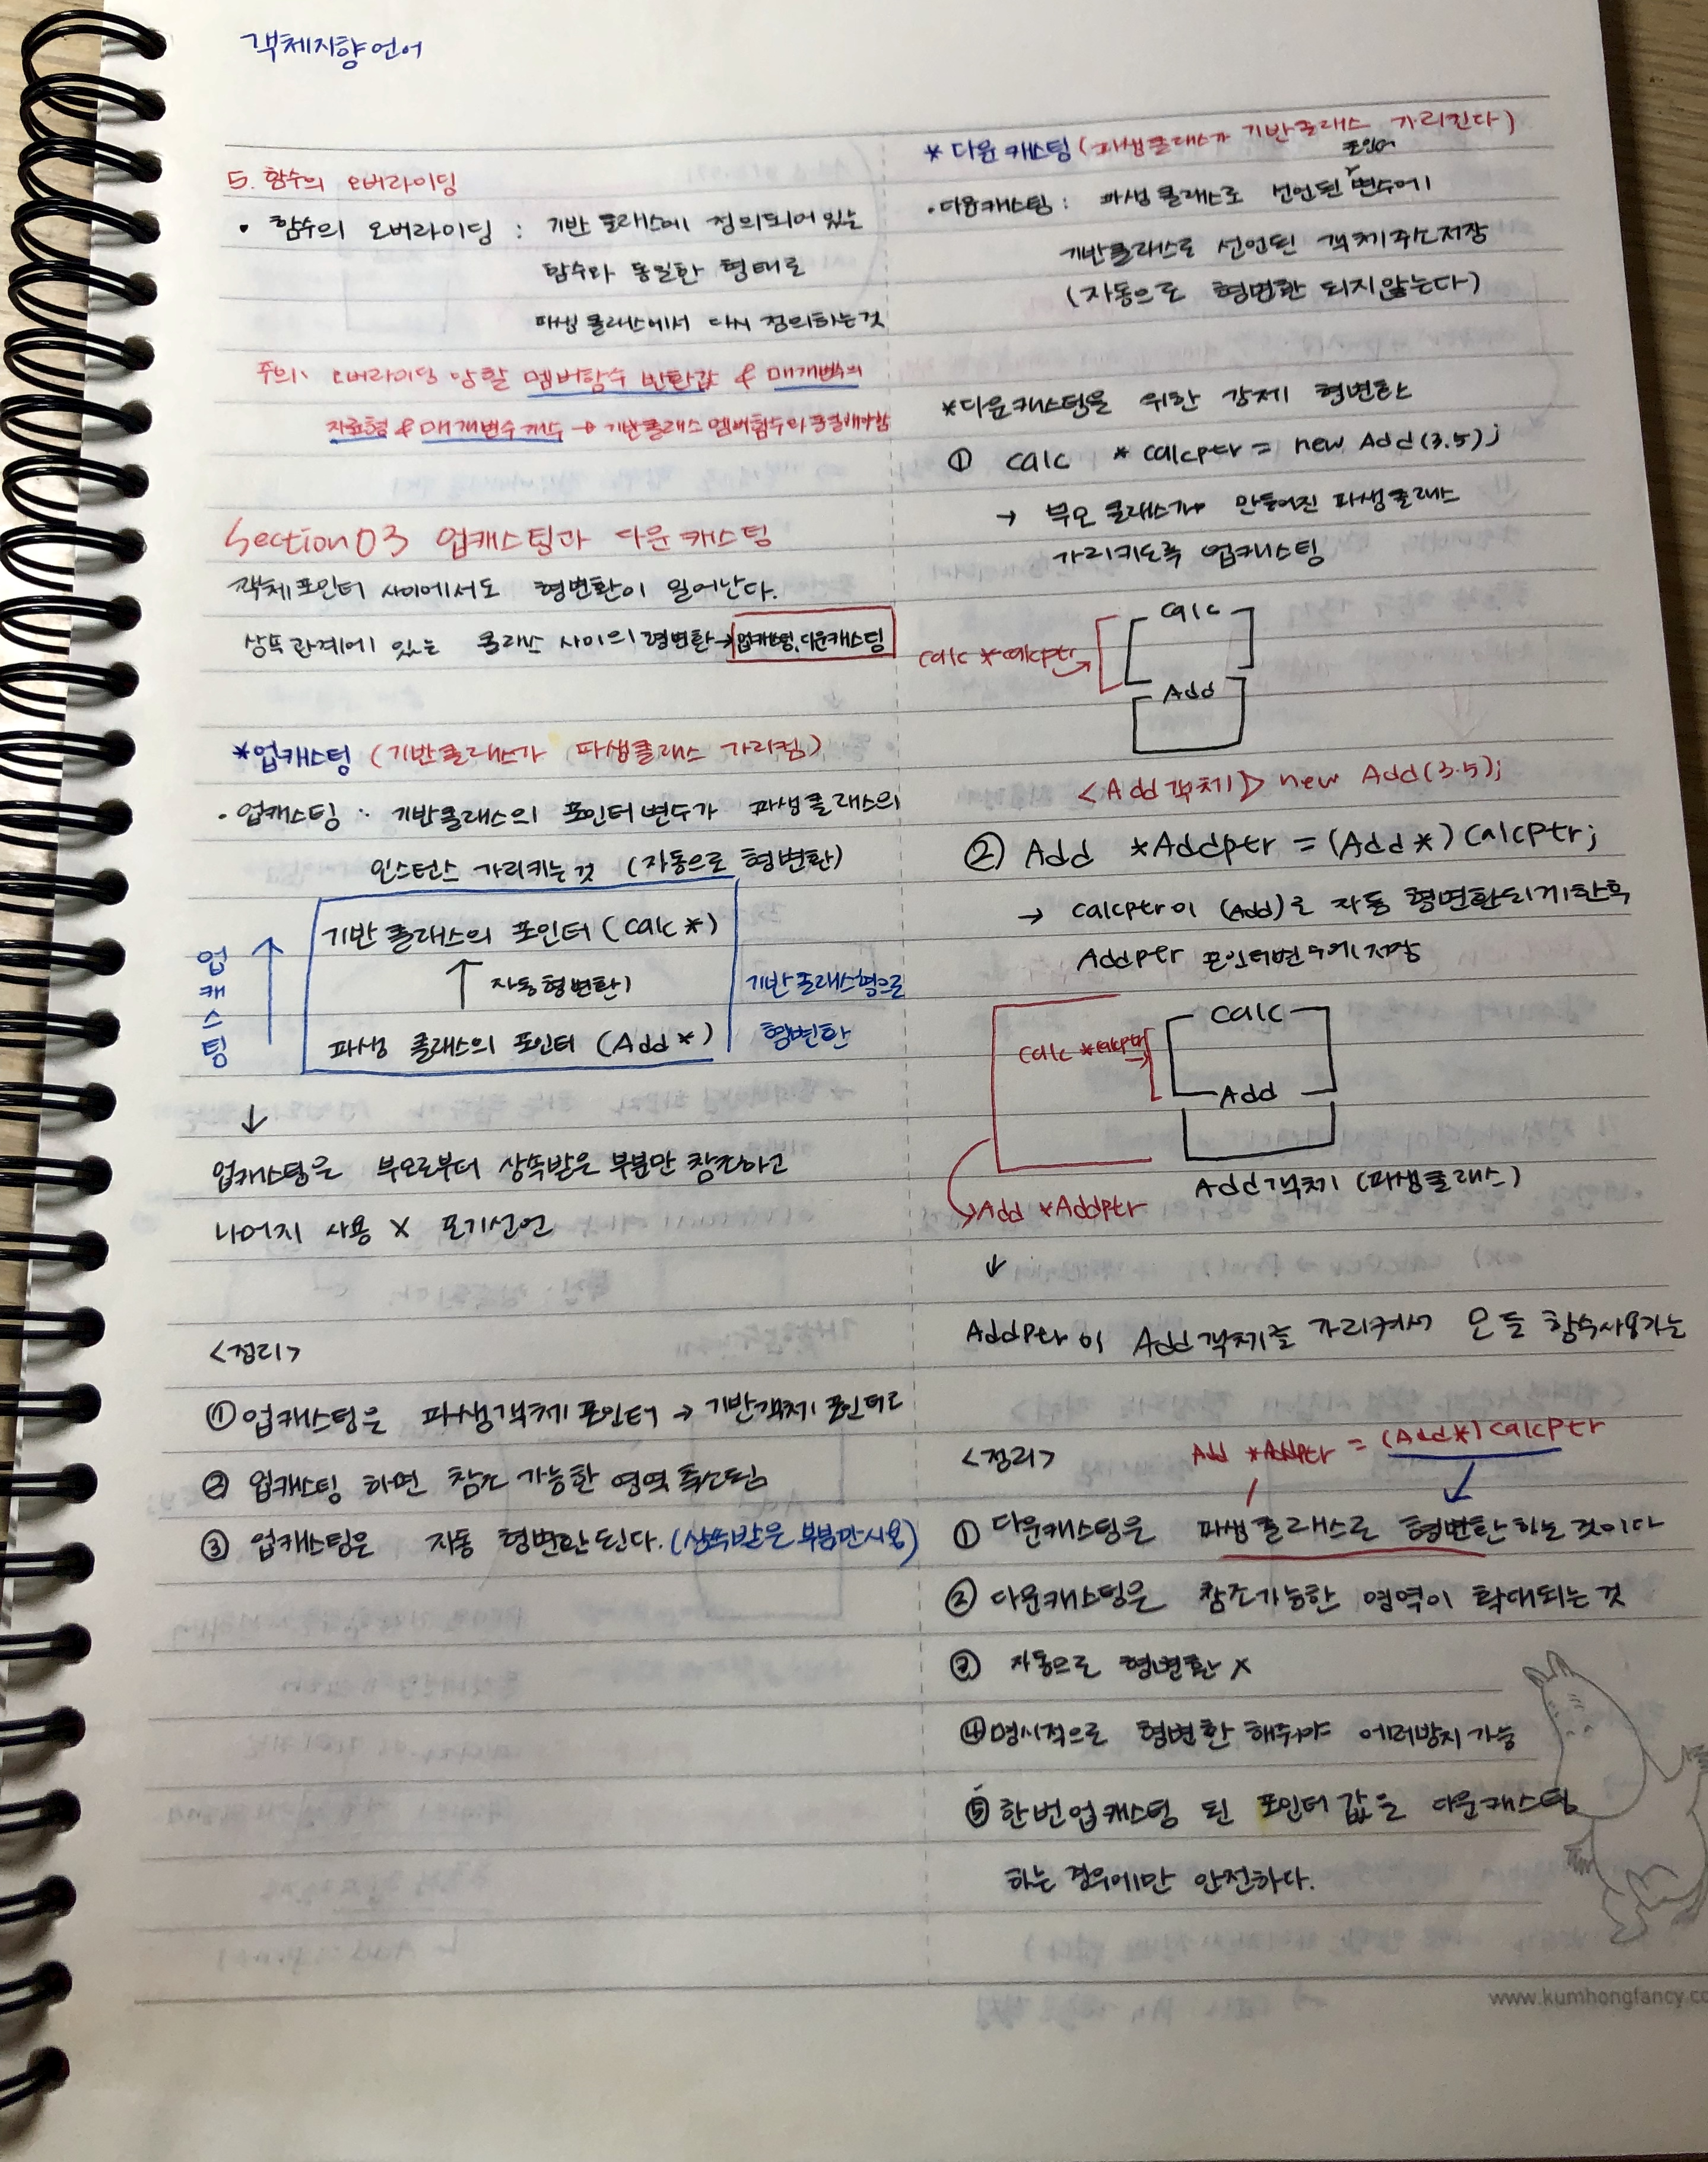 객체지향언어
5. 함수의 오버라이딩
• 함수의 오버라이딩 : 기반 클래스에 정의되어 있는
함수와 동일한 형태로
파생 클래스에서 다시 정의하는 것
주의, 오버라이딩 당할 멤버함수 반환값 & 매개변수의
자료형 & 매개변수 개수 → 기반클래스 멤버함수와 동일해야함
Section 03 업캐스팅과 다운캐스팅
객체 포인터 사이에서도 형변환이 일어난다.
상속관계에 있는 클래스 사이의 형변환→ 업캐스팅, 다운캐스팅
*업캐스팅 (기반클래스가 파생클래스 가리킴)
• 업캐스팅 : 기반클래스의 포인터변수가 파생클래스의
인스턴스 가리키는것 (자동으로 형변환)
업캐스팅 ↑
기반 클래스의 포인터 (Calc *)
↑ 자동형변환
파생 클래스의 포인터 (Add *)
기반 클래스형으로
형변환
↓
업캐스팅은 부모로부터 상속받은 부분만 참조하고
나머지 사용 X 포기선언
<정리>
① 업캐스팅은 파생객체 포인터 → 기반객체 포인터로
② 업캐스팅 하면 참조 가능한 영역 축소됨
③ 업캐스팅은 자동 형변환된다. (상속받은 부분만 사용)
* 다운캐스팅 (파생클래스가 기반클래스 가리킨다)
포인터
• 다운캐스팅 : 파생 클래스로 선언된 변수에
기반클래스로 선언된 객체주소저장
(자동으로 형변환 되지않는다)
*다운캐스팅을 위한 강제 형변환
① Calc * Calcptr = new Add(3.5);
→ 부모 클래스가 만들어진 파생클래스
가리키도록 업캐스팅
Calc
Calc *calcptr →
Add
<Add객체> new Add(3.5);
② Add *Addptr = (Add*) CalcPtr;
→ Calcptr이 (Add)로 자동 형변환되게한후
Addptr 포인터변수에 저장
Calc
Calc *calcptr →
Add
Add객체 (파생클래스)
Add *Addptr
↓
AddPtr이 Add객체를 가리켜서 모든 함수사용가능
<정리> Add *Addptr = (Add*)CalcPtr
① 다운캐스팅은 파생클래스로 형변환하는 것이다
② 다운캐스팅은 참조가능한 영역이 확대되는 것
③ 자동으로 형변환 X
④ 명시적으로 형변환 해줘야 에러방지 가능
⑤ 한번 업캐스팅 된 포인터 값을 다운캐스팅
하는 경우에만 안전하다.
www.kumhongfancy.co